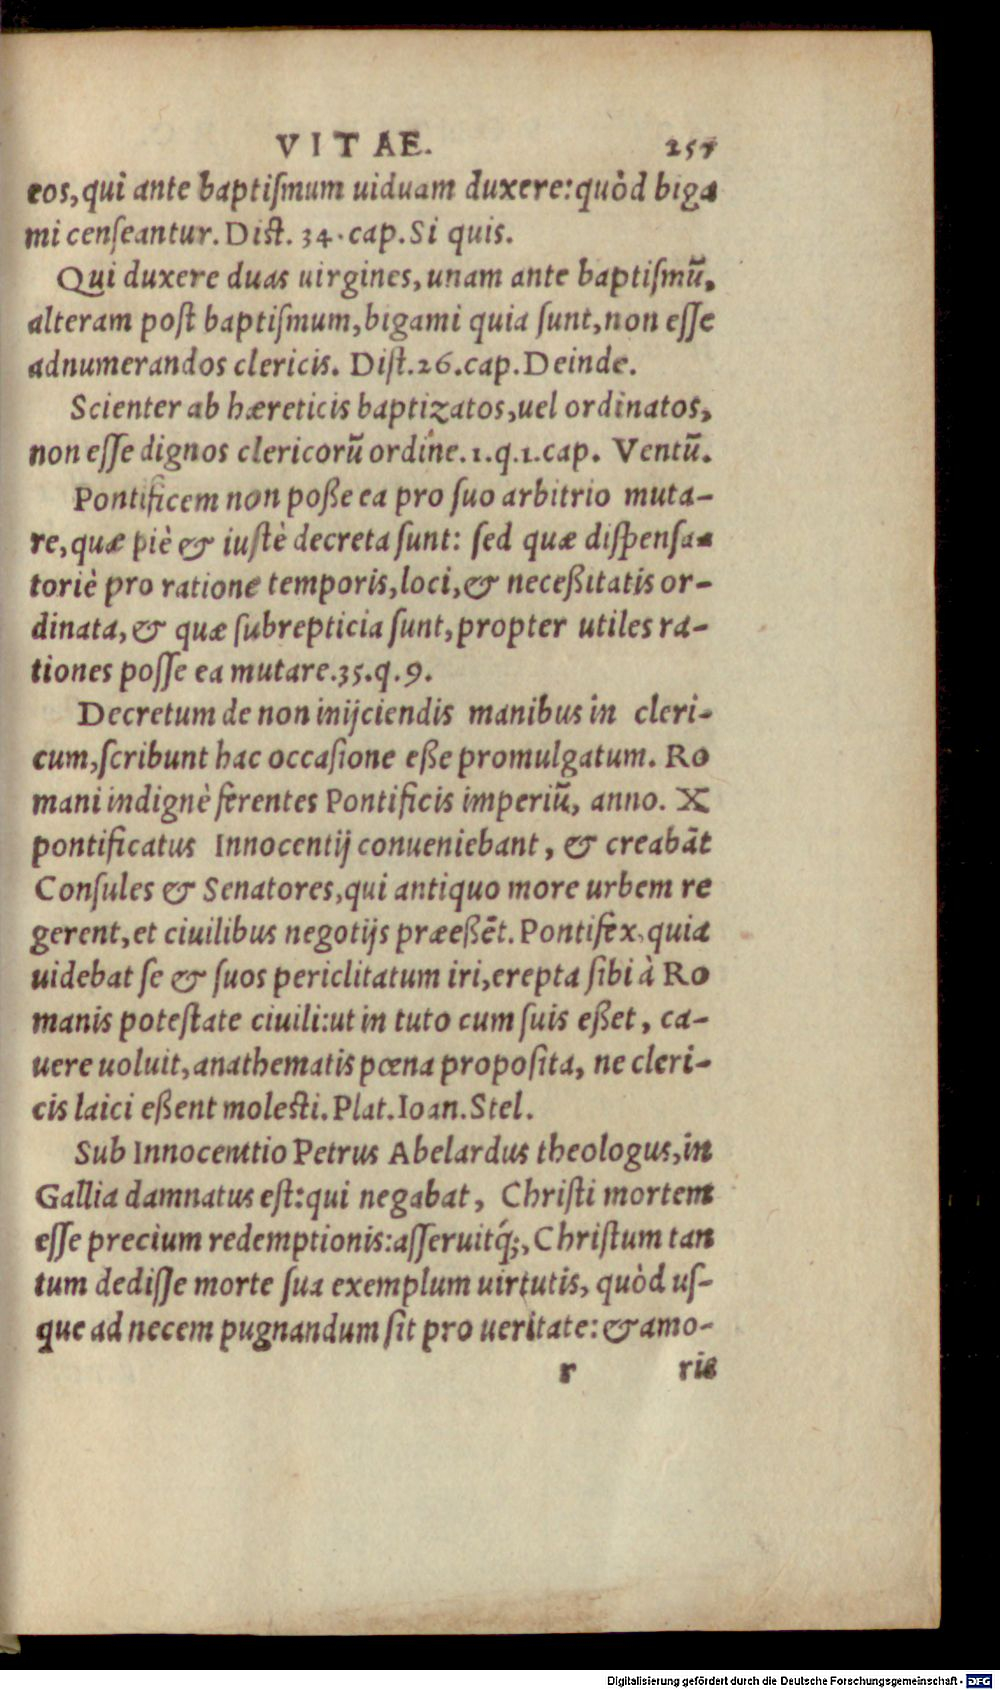 VITAE. 257
eos, qui ante baptiſmum uiduam duxere: quòd biga
mi cenſeantur. Diſt. 34. cap. Si quis.
Qui duxere duas uirgines, unam ante baptiſmũ,
alteram poſt baptiſmum, bigami quia ſunt, non eſſe
adnumerandos clericis. Diſt. 26. cap. Deinde.
Scienter ab hæreticis baptizatos, uel ordinatos,
non eſſe dignos clericorũ ordine. 1. q. 1. cap. Ventũ.
Pontificem non poße ea pro ſuo arbitrio muta-
re, quæ piè & iuſtè decreta ſunt: ſed quæ diſpenſa-
toriè pro ratione temporis, loci, & neceßitatis or-
dinata, & quæ ſubrepticia ſunt, propter utiles ra-
tiones poſſe ea mutare. 35. q. 9.
Decretum de non inijciendis manibus in cleri-
cum, ſcribunt hac occaſione eße promulgatum. Ro
mani indignè ferentes Pontificis imperiũ, anno. X
pontificatus Innocentij conueniebant, & creabãt
Conſules & Senatores, qui antiquo more urbem re
gerent, et ciuilibus negotijs præeßẽt. Pontifex, quia
uidebat ſe & ſuos periclitatum iri, erepta ſibi à Ro
manis poteſtate ciuili: ut in tuto cum ſuis eßet, ca-
uere uoluit, anathematis pœna propoſita, ne cleri-
cis laici eßent moleſti. Plat. Ioan. Stel.
Sub Innocenttio Petrus Abelardus theologus, in
Gallia damnatus eſt: qui negabat, Chriſti mortem
eſſe precium redemptionis: aſſeruitq́;, Chriſtum tan
tum dediſſe morte ſua exemplum uirtutis, quòd uſ-
que ad necem pugnandum ſit pro ueritate: & amo-
r ris
Digitalisierung gefördert durch die Deutsche Forschungsgemeinschaft - DFG